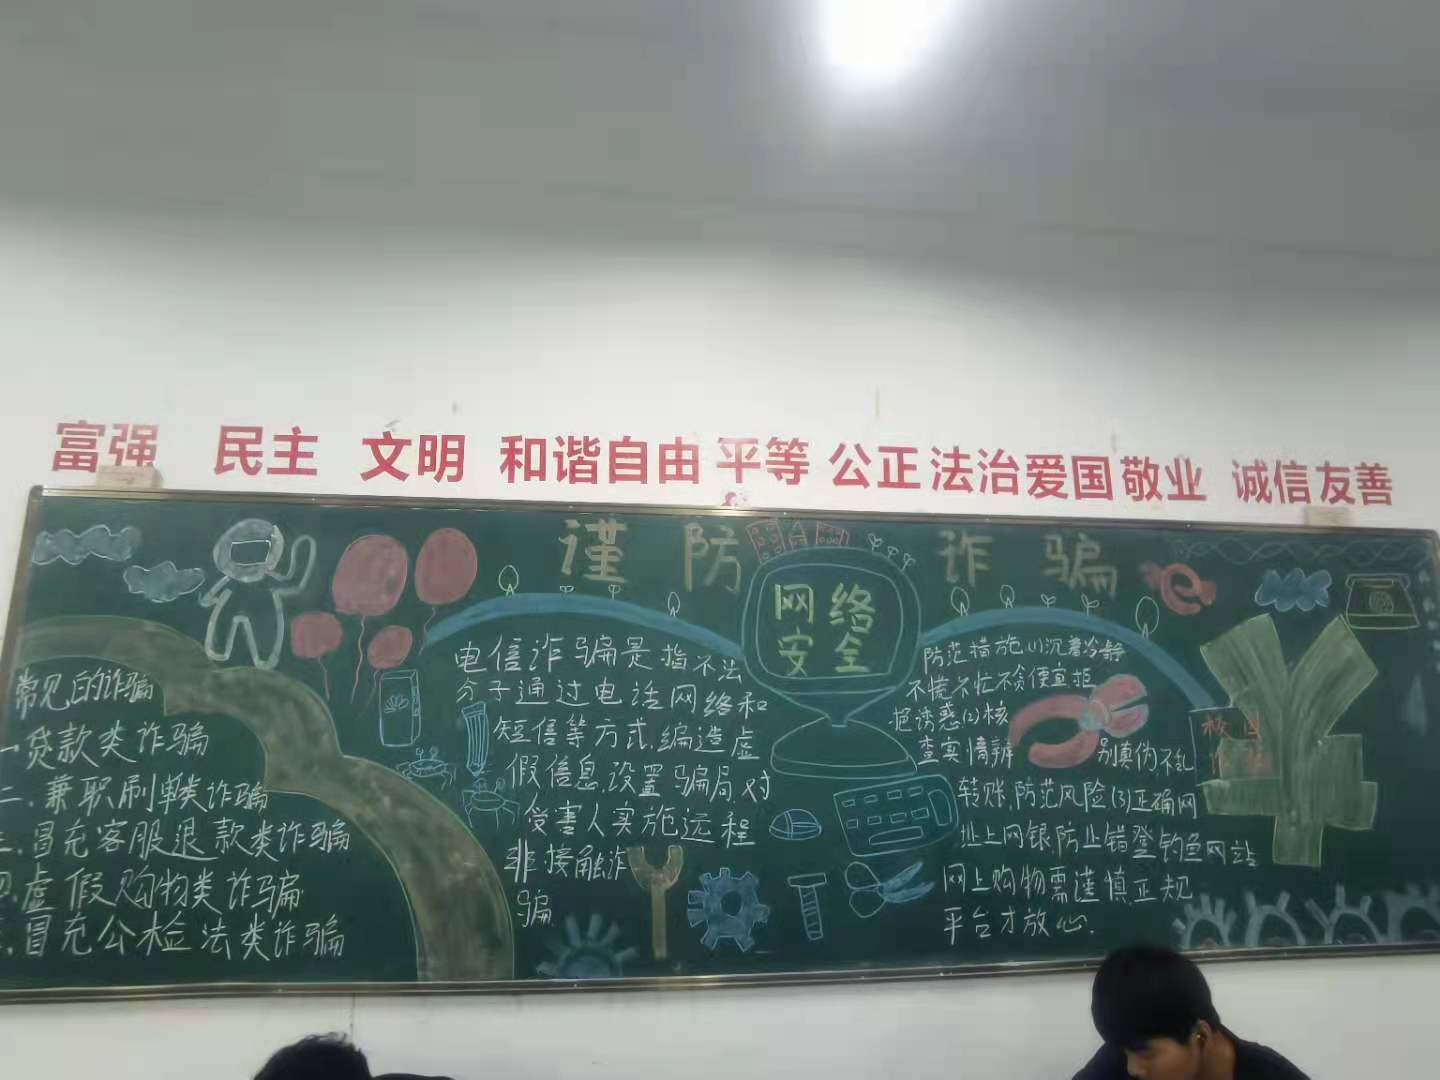 富强 民主 文明 和谐 自由 平等 公正 法治 爱国 敬业 诚信 友善
谨防诈骗
网络
安全
常见的诈骗
一.贷款类诈骗
二.兼职刷单类诈骗
三.冒充客服退款类诈骗
四.虚假购物类诈骗
五.冒充公检法类诈骗
电信诈骗是指不法
分子通过电话网络和
短信等方式,编造虚
假信息,设置骗局,对
受害人实施远程
非接触诈
骗
防范措施(1)沉着冷静
不慌不忙不贪便宜拒
绝诱惑(2)核
查实情辨别真伪,不乱
转账,防范风险(3)正确网
址上网银,防止错登钓鱼网站
网上购物需谨慎,正规
平台才放心.
校园